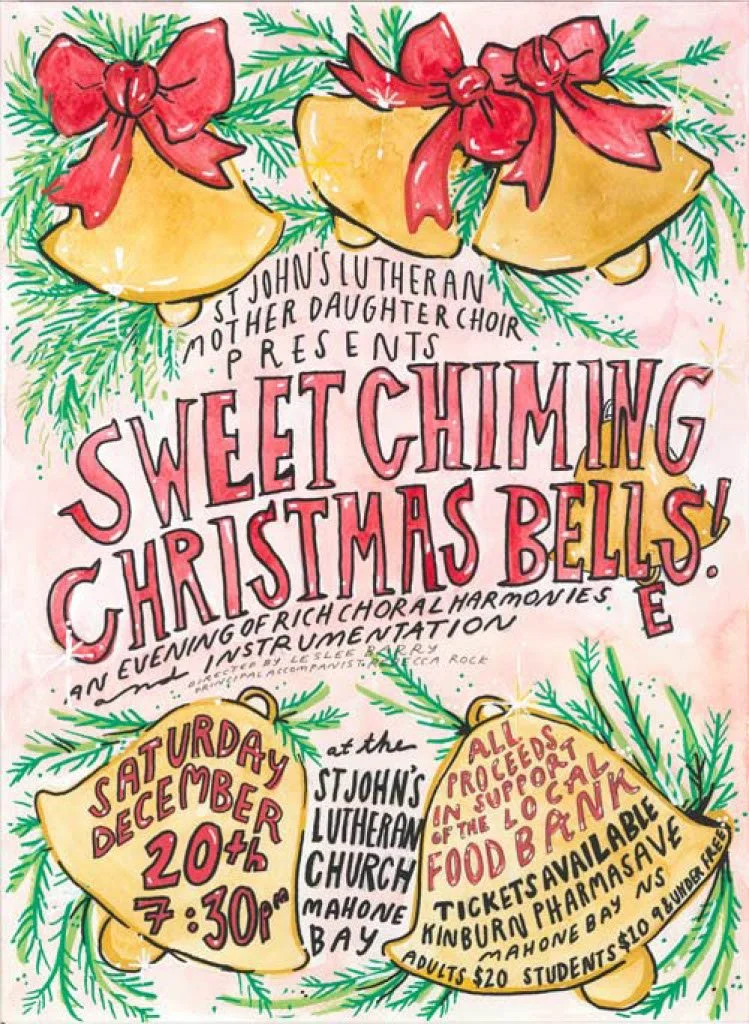 ST JOHN'S LUTHERAN
MOTHER DAUGHTER CHOIR
PRESENTS
SWEET CHIMING
CHRISTMAS BELLS!
E
AN EVENING OF RICH CHORAL HARMONIES
and INSTRUMENTATION
DIRECTED BY LESLEE BARRY
PRINCIPAL ACCOMPANIST: REBECCA ROCK
SATURDAY
DECEMBER
20th
7:30pm
at the
ST JOHN'S
LUTHERAN
CHURCH
MAHONE
BAY
ALL
PROCEEDS
IN SUPPORT
OF THE LOCAL
FOOD BANK
TICKETS AVAILABLE
KINBURN PHARMASAVE
MAHONE BAY NS
ADULTS $20 STUDENTS $10 9 & UNDER FREE